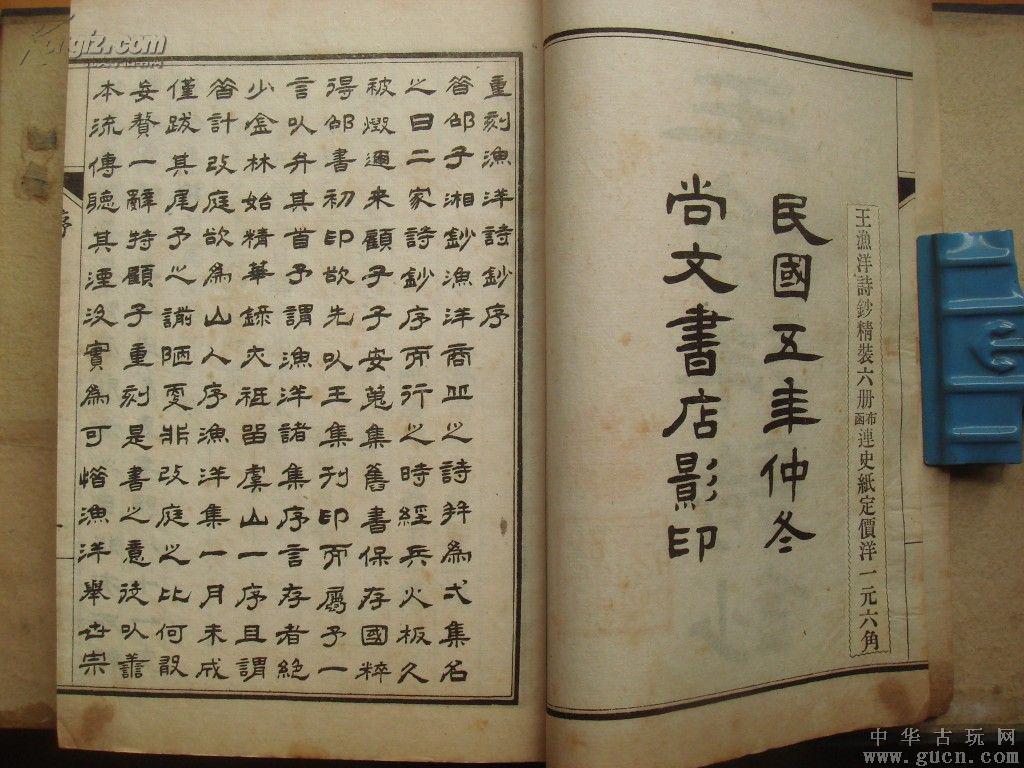 王漁洋詩鈔精裝六册布函連史紙定價洋一元六角
民國五年仲冬
尚文書店影印
重刻漁洋詩鈔序
昔邵子湘鈔漁洋商丘之詩并為弌集名
之曰二家詩鈔序而行之時經兵火板久
被燬邇來顧子子安蒐集舊書保存國粹
得邵書初印欲先以王集刊印而屬予一
言以弁其首予謂漁洋諸集序言存者絕
少金林始精華錄亦祗留虞山一序且謂
昔計改庭欲為山人序漁洋集一月未成
僅跋其尾予之謭陋更非改庭之比何敢
妄贅一辭特顧子重刻是書之意徒以善
本流傳聽其湮沒實為可惜漁洋舉世宗
序
中华古玩网
www.gucn.com